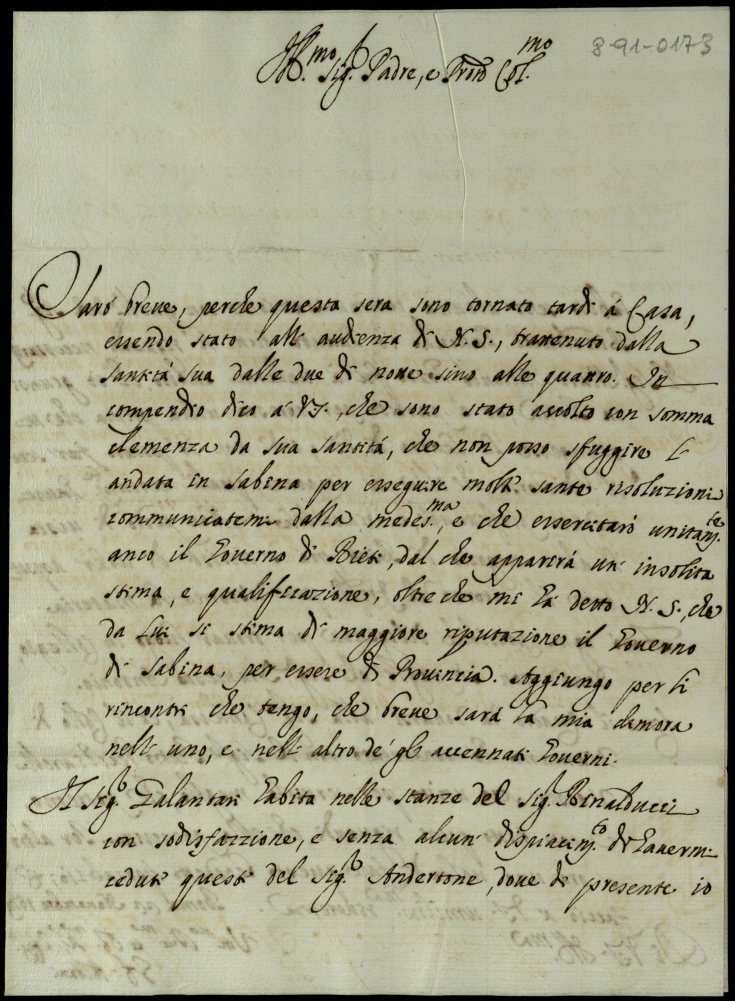 8-91-0173
Ill.mo Sig.r Padre, e Pron Col.mo
Sarò breue, perche questa sera sono tornato tardi à Casa,
essendo stato all' audienza di N. S., trattenuto dalla
Santità sua dalle due di notte sino alle quattro. In
compendio dico à VS. che sono stato accolto con somma
clemenza da sua santità, che non posso sfuggire l'
andata in Sabina per esseguire molte sante risoluzioni
communicatemi dalla medes.ma, e che essercitarò unitam.te
anco il Gouerno di Rieti, dal che apparirà un' insolita
stima, e qualificazione, oltre che mi hà detto N. S., che
da Lui si stima di maggiore riputazione il Gouerno
di Sabina, per essere di Prouincia. Aggiungo per li
rincontri che tengo, che breue sarà la mia dimora
nell' uno, e nell' altro de' gli accennati Gouerni.
Il Sig.r Galantari habita nelle stanze del Sig.r Rinalducci
con sodisfazzione, e senza alcun' dispiacim.to di hauermi
cedute queste del Sig.r Andertone, doue di presente io